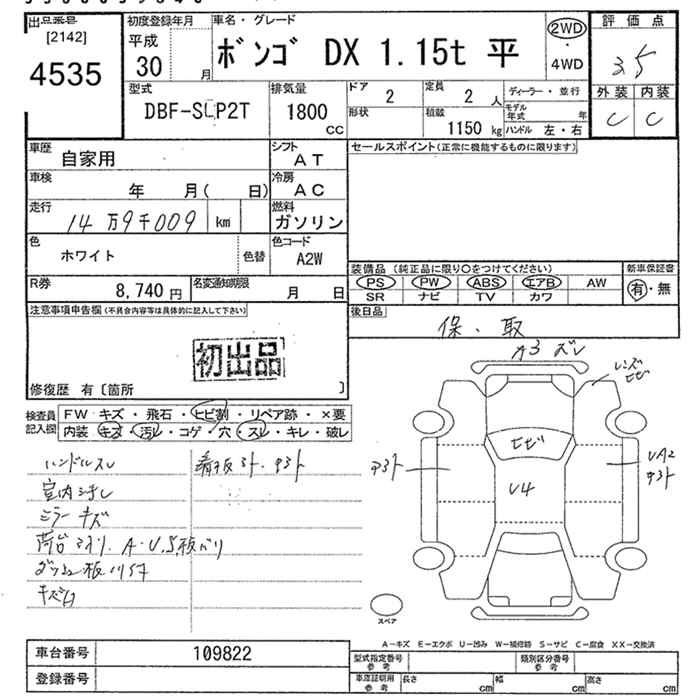 出品番号
[2142]
4535
初度登録年月
平成
30 月
車名・グレード
ボンゴ DX 1.15t 平
2WD
・
4WD
評価点
3.5
外装 内装
C C
型式
DBF-SLP2T
排気量
1800
cc
ドア
2
定員
2 人
形状
積載
1150 kg
ディーラー・並行
モデル年式 年
ハンドル 左・右
車歴
自家用
シフト
AT
車検
年 月( 日)
冷房
AC
走行
14万9千009 km
燃料
ガソリン
色
ホワイト
色替
色コード
A2W
R券
8,740 円
名変通知期限
月 日
セールスポイント(正常に機能するものに限ります)
装備品(純正品に限り○をつけてください)
PS PW ABS エアB AW
SR ナビ TV カワ
新車保証書
有・無
後日品
保、取
注意事項申告欄(不具合内容等は具体的に記入して下さい)
初出品
修復歴 有〔箇所 〕
検査員記入欄
FW キズ・飛石・ヒビ割・リペア跡・×要
内装 キズ・汚レ・コゲ・穴・スレ・キレ・破レ
ハンドルスレ
室内汚れ
ミラーキズ
A3 ズレ
レンズヒビ
ヒビ
U4
UA2
スペア
A-キズ E-エクボ U-凹み W-補修跡 S-サビ C-腐食 XX-交換済
車台番号
109822
登録番号
型式指定番号
参考
類別区分番号
参考
車庫証明用
参考
長さ cm 幅 cm 高さ cm